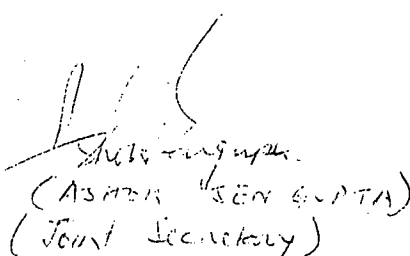 (ASHOK SEN GUPTA)
(Joint Secretary)